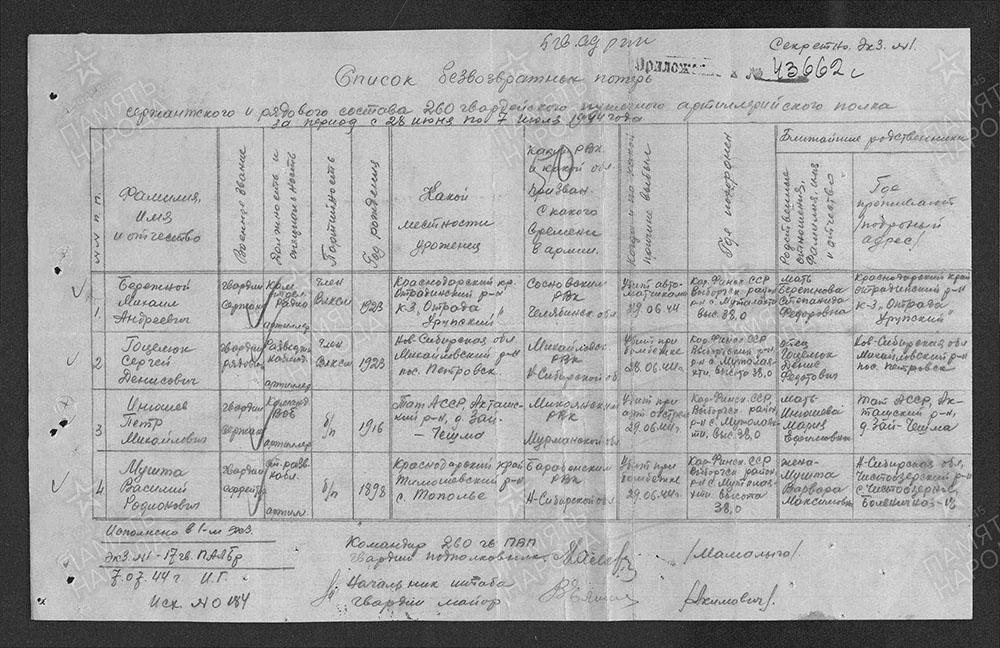 Секретно. Экз. №1.
№ 43662с
Список безвозвратных потерь
сержантского и рядового состава 260 гвардейского пушечного артиллерийского полка
за период с 28 июня по 7 июля 1944 года
№ № п. п.
Фамилия,
имя
и отчество
Военное звание
Должность и
специальность
Партийность
Год рождения
Какой
местности
уроженец
Каким РВК
и какой обл
призван.
С какого
времени
в армии.
Когда и по какой
причине выбыл
Где похоронен
Ближайшие родственники
Родственные
отношения,
Фамилия, имя
и отчество
Где
проживают
/подробный
адрес/
1.
Бережной
Михаил
Андреевич
гвардии
Сержант
Ком.
радио
артиллер
член
ВЛКСМ
1923
Краснодарский кр.
Отрадинский р-н
к-з „Отрада
Урупский"
Сосновским
РВК
Челябинск. обл
Убит авто-
матчиком
29.06.44
Кар-Финск. ССР
Выборгск. район
выс. 38,0
мать
Бережнова
Степанида
Федоровна
Краснодарский край
Отрадинский р-н
к-з „Отрада
Урупский"
2
Гоцелюк
Сергей
Денисович
гвардии
рядовой
Разведч.
артиллер
член
ВЛКСМ
1923
Нов-Сибирская обл
Михайловский р-н
пос. Петровск.
Михайловск
РВК
Н-Сибирской об.
Убит при
бомбежке
28.06.44г
Кар-Финск. ССР
высота 38,0
отец
Гоцелюк
Денис
Федотович
Нов-Сибирская обл
Михайловский р-н
пос. Петровск
3
Инюшев
Петр
Михайлович
гвардии
сержант
Команд
артиллер
б/п
1916
Тат АССР, Акташ-
ский р-н, д. Зай-
— Чешма
РВК
Мурманской об.
Убит при
арт обстрел
29.06.44г
Кар-Финск. ССР,
Выборгск. район,
выс. 38,0
мать
Инюшева
Мария
Ефимовна
Тат АССР, Ак-
ташский р-н,
д. Зай-Чешма
4
Мушта
Василий
Родионович
гвардии
ефрейтр
артилл.
б/п
1898
Краснодарский край
Тимошевский р-н
с. Тополье
Барабинским
РВК
Н-Сибирской обл
Убит при
бомбежке
29.06.44г
Кар-Финск. ССР
Выборгск район
высота
38,0
жена-
Мушта
Варвара
Максимовна
Н-Сибирская обл,
Чистоозерный р-н
с. Чистоозерное
Исполнено в 1-м экз.
Экз. №1 - 17 гв. ПАБр
7.07.44 г И.Г.
Исх. № 0184
Командир 260 гв ПАП
гвардии подполковник
/Мамалыга/.
Начальник штаба
гвардии майор
/Якимович/.